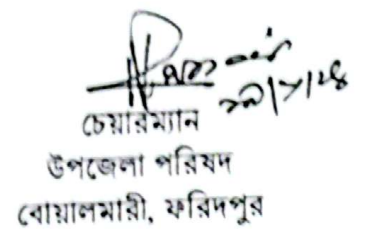 চেয়ারম্যান
উপজেলা পরিষদ
বোয়ালমারী, ফরিদপুর